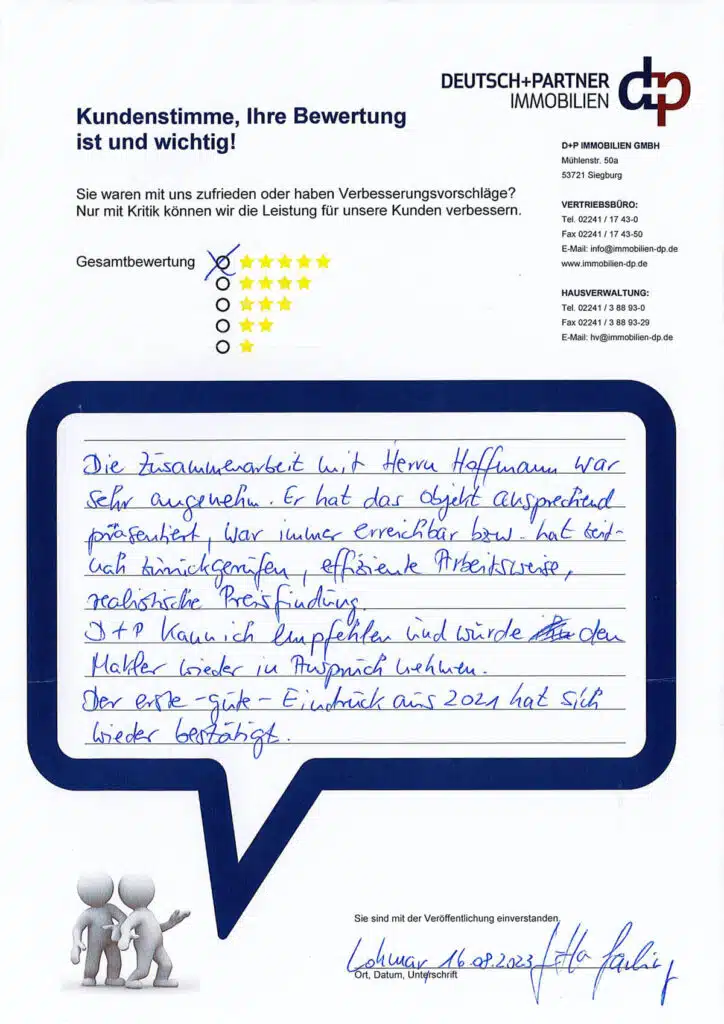 DEUTSCH+PARTNER
IMMOBILIEN
dp
Kundenstimme, Ihre Bewertung
ist und wichtig!
D+P IMMOBILIEN GMBH
Mühlenstr. 50a
53721 Siegburg
Sie waren mit uns zufrieden oder haben Verbesserungsvorschläge?
Nur mit Kritik können wir die Leistung für unsere Kunden verbessern.
VERTRIEBSBÜRO:
Tel. 02241 / 17 43-0
Fax 02241 / 17 43-50
E-Mail: info@immobilien-dp.de
www.immobilien-dp.de
Gesamtbewertung
HAUSVERWALTUNG:
Tel. 02241 / 3 88 93-0
Fax 02241 / 3 88 93-29
E-Mail: hv@immobilien-dp.de
Die Zusammenarbeit mit Herrn Hoffmann war
sehr angenehm. Er hat das Objekt ansprechend
präsentiert, war immer erreichbar bzw. hat zeit-
nah zurückgerufen, effiziente Arbeitsweise,
realistische Preisfindung.
D+P kann ich empfehlen und würde den
Makler wieder in Anspruch nehmen.
Der erste -gute- Eindruck aus 2021 hat sich
wieder bestätigt.
Sie sind mit der Veröffentlichung einverstanden.
Lohmar 16.08.2023
Ort, Datum, Unterschrift